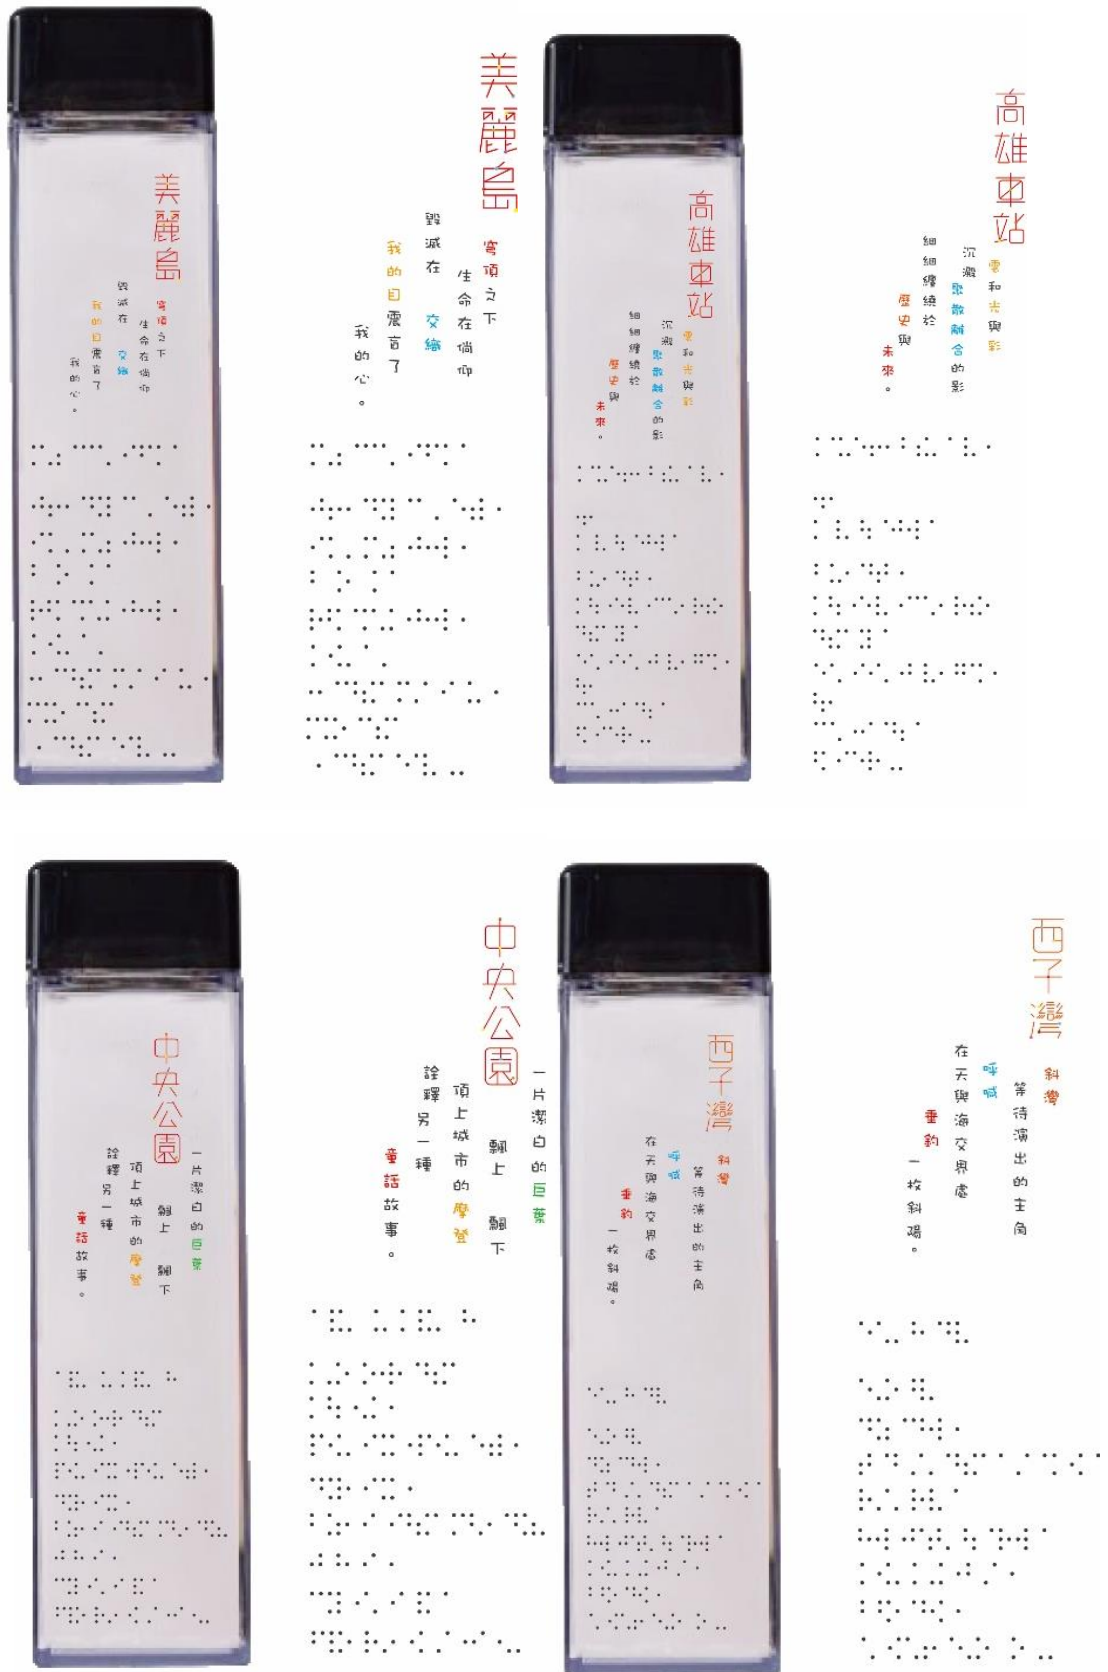 美麗島
穹頂之下
生命在倘仰
毀滅在 交織
我的目震盲了
我的心。
美麗島
穹頂之下
生命在倘仰
毀滅在 交織
我的目震盲了
我的心。
高雄車站
雲和光與彩
沉澱
聚散離合的影
細細纏繞於
歷史與
未來。
高雄車站
雲和光與彩
沉澱
聚散離合的影
細細纏繞於
歷史與
未來。
中央公園
一片潔白的巨葉
飄上 飄下
頂上城市的摩登
詮釋另一種
童話故事。
中央公園
一片潔白的巨葉
飄上 飄下
頂上城市的摩登
詮釋另一種
童話故事。
西子灣
斜灣
等待演出的主角
呼喊
在天與海交界處
垂釣
一枚斜陽。
西子灣
斜灣
等待演出的主角
呼喊
在天與海交界處
垂釣
一枚斜陽。